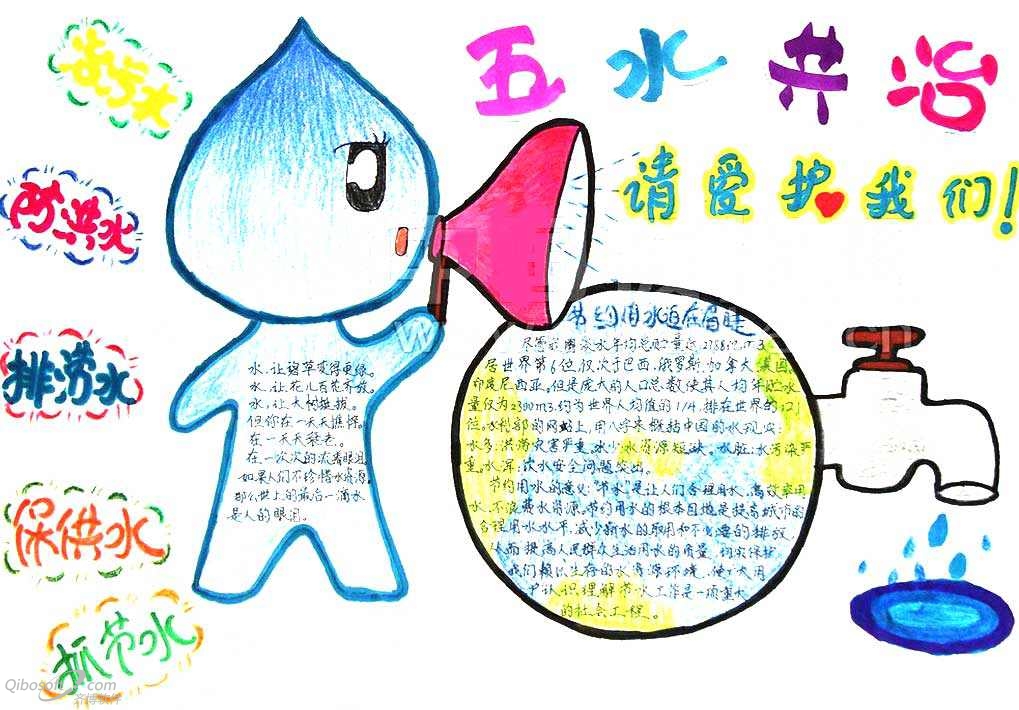 五水共治
请爱护我们!
治污水
防洪水
排涝水
保供水
抓节水
水,让碧草变得更绿。
水,让花儿百花齐放。
水,让大树挺拔。
但你在一天天憔悴
在一天天褪色。
在一次次的流着眼泪
如果人们不珍惜水资源。
那么世上的最后一滴水
是人的眼泪。
节约用水迫在眉睫
尽管我国淡水年均总贮量
居世界第6位,仅次于巴西,俄罗斯,加拿大,美国,
印度尼西亚。但是庞大的人口总数使其人均年贮水
量仅为2300m3.约为世界人均值的1/4,排在世界的121
位。水利部的网站上,用八字来概括中国的水现况:
水多:洪涝灾害严重,水少水资源短缺。水脏:水污染严
重,水浑:饮水安全问题突出。
节约用水的意义:"节水"是让人们合理用水,高效率用
水,不浪费水资源。节约用水的根本目地是提高城市的
合理用水水平,减少新水的取用和不必要的排放,
从而提高人民群众生活用水的质量,切实保护
我们赖以生存的水资源环境,使广大用
户认识理解节水工作是一项重大
的社会工程。
Qibosoft.com
齐博软件